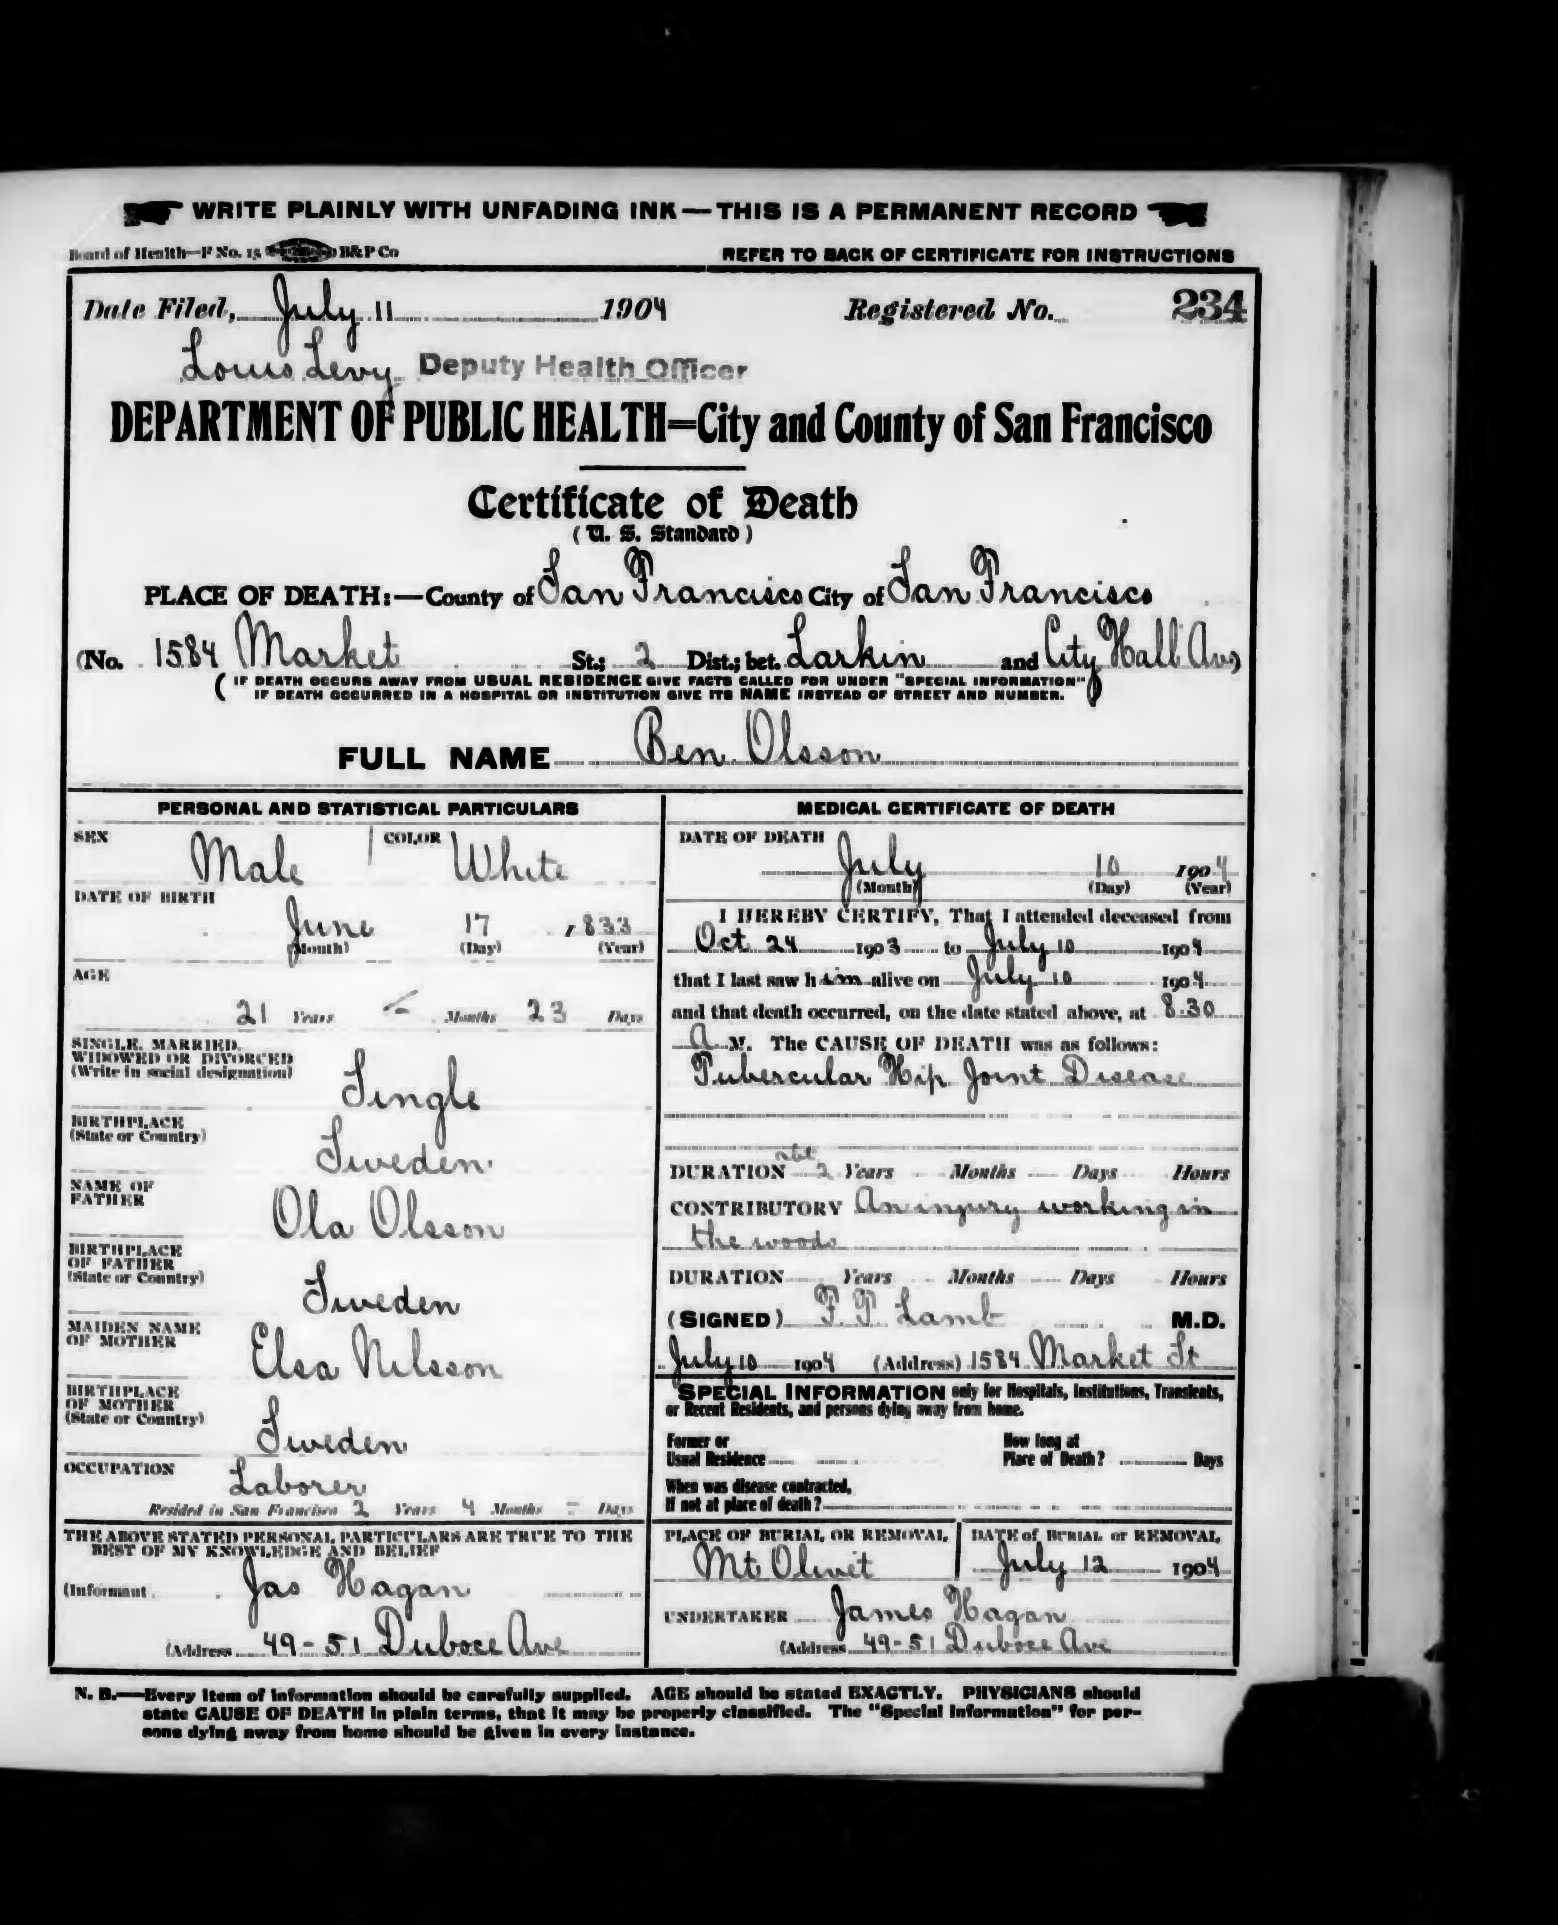 WRITE PLAINLY WITH UNFADING INK—THIS IS A PERMANENT RECORD
Board of Health—F No. 15 B&P Co REFER TO BACK OF CERTIFICATE FOR INSTRUCTIONS
Date Filed, July 11 1904 Registered No. 234
Louis Levy Deputy Health Officer
DEPARTMENT OF PUBLIC HEALTH=City and County of San Francisco
Certificate of Death
(U. S. Standard)
PLACE OF DEATH:—County of San Francisco City of San Francisco
(No. 1584 Market St.; 2 Dist.; bet. Larkin and City Hall Av)
(IF DEATH OCCURS AWAY FROM USUAL RESIDENCE GIVE FACTS CALLED FOR UNDER "SPECIAL INFORMATION"
IF DEATH OCCURRED IN A HOSPITAL OR INSTITUTION GIVE ITS NAME INSTEAD OF STREET AND NUMBER.)
FULL NAME Ben Olsson
PERSONAL AND STATISTICAL PARTICULARS
SEX Male COLOR White
DATE OF BIRTH
June 17 , 833
(Month) (Day) (Year)
AGE
21 Years Months 23 Days
SINGLE, MARRIED,
WIDOWED OR DIVORCED
(Write in social designation)
Single
BIRTHPLACE
(State or Country)
Sweden
NAME OF
FATHER
Ola Olsson
BIRTHPLACE
OF FATHER
(State or Country)
Sweden
MAIDEN NAME
OF MOTHER
Elsa Nilsson
BIRTHPLACE
OF MOTHER
(State or Country)
Sweden
OCCUPATION
Laborer
Resided in San Francisco 2 Years 4 Months - Days
THE ABOVE STATED PERSONAL PARTICULARS ARE TRUE TO THE
BEST OF MY KNOWLEDGE AND BELIEF
(Informant Jas Hagan
(Address 49-51 Duboce Ave
MEDICAL CERTIFICATE OF DEATH
DATE OF DEATH
July 10 1904
(Month) (Day) (Year)
I HEREBY CERTIFY, That I attended deceased from
Oct 24 1903 to July 10 1904
that I last saw him alive on July 10 1904
and that death occurred, on the date stated above, at 8.30
A M. The CAUSE OF DEATH was as follows:
Tubercular Hip Joint Disease
abt
DURATION 2 Years Months Days Hours
CONTRIBUTORY An injury working in
the woods
DURATION Years Months Days Hours
(SIGNED) F. P. Lamb M.D.
July 10 1904 (Address) 1584 Market St
SPECIAL INFORMATION only for Hospitals, Institutions, Transients,
or Recent Residents, and persons dying away from home.
Former or
Usual Residence
How long at
Place of Death? Days
When was disease contracted,
If not at place of death?
PLACE OF BURIAL OR REMOVAL
Mt Olivit
DATE of BURIAL or REMOVAL
July 12 1904
UNDERTAKER James Hagan
(Address 49-51 Duboce Ave
N. B.—Every item of information should be carefully supplied. AGE should be stated EXACTLY. PHYSICIANS should
state CAUSE OF DEATH in plain terms, that it may be properly classified. The "Special Information" for per-
sons dying away from home should be given in every instance.